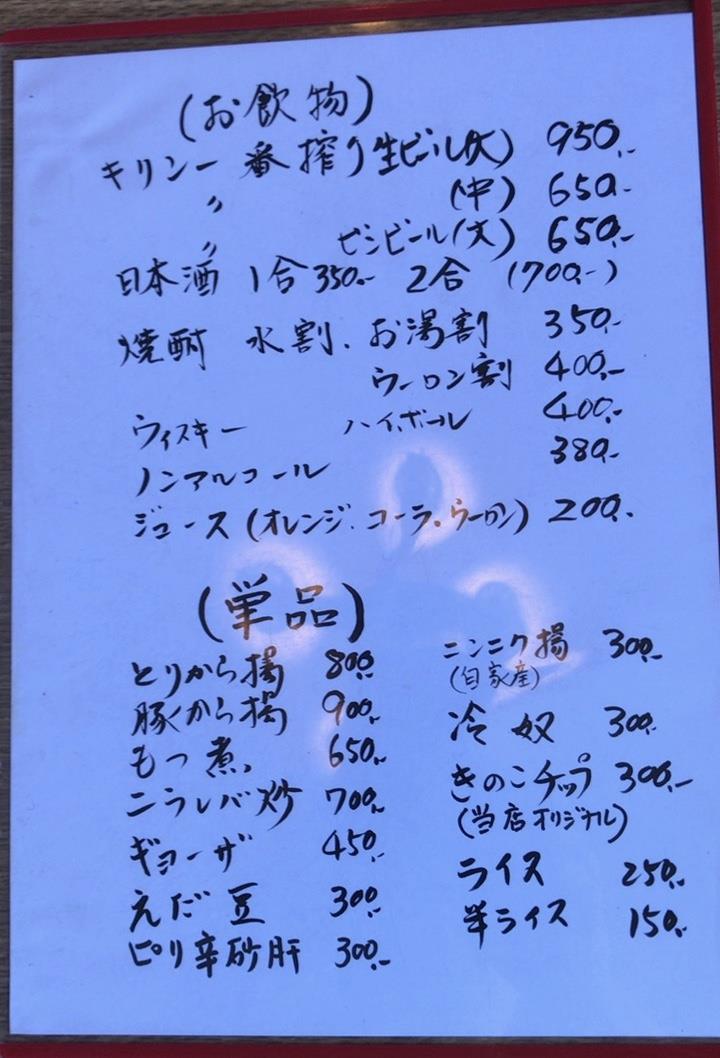 (お飲物)
キリン一番搾り生ビール(大) 950.-
〃 (中) 650.-
〃 ビンビール(大) 650.-
日本酒 1合 350.- 2合 (700.-)
焼酎 水割、お湯割 350.-
ウーロン割 400.-
ウィスキー ハイボール 400.-
ノンアルコール 380.-
ジュース (オレンジ、コーラ、ウーロン) 200.-
(単品)
とりから揚 800.-
豚から揚 900.-
もつ煮 650.-
ニラレバ炒 700.-
ギョーザ 450.-
えだ豆 300.-
ピリ辛砂肝 300.-
ニンニク揚 300.-
(自家産)
冷奴 300.-
きのこチップ 300.-
(当店オリジナル)
ライス 250.-
半ライス 150.-